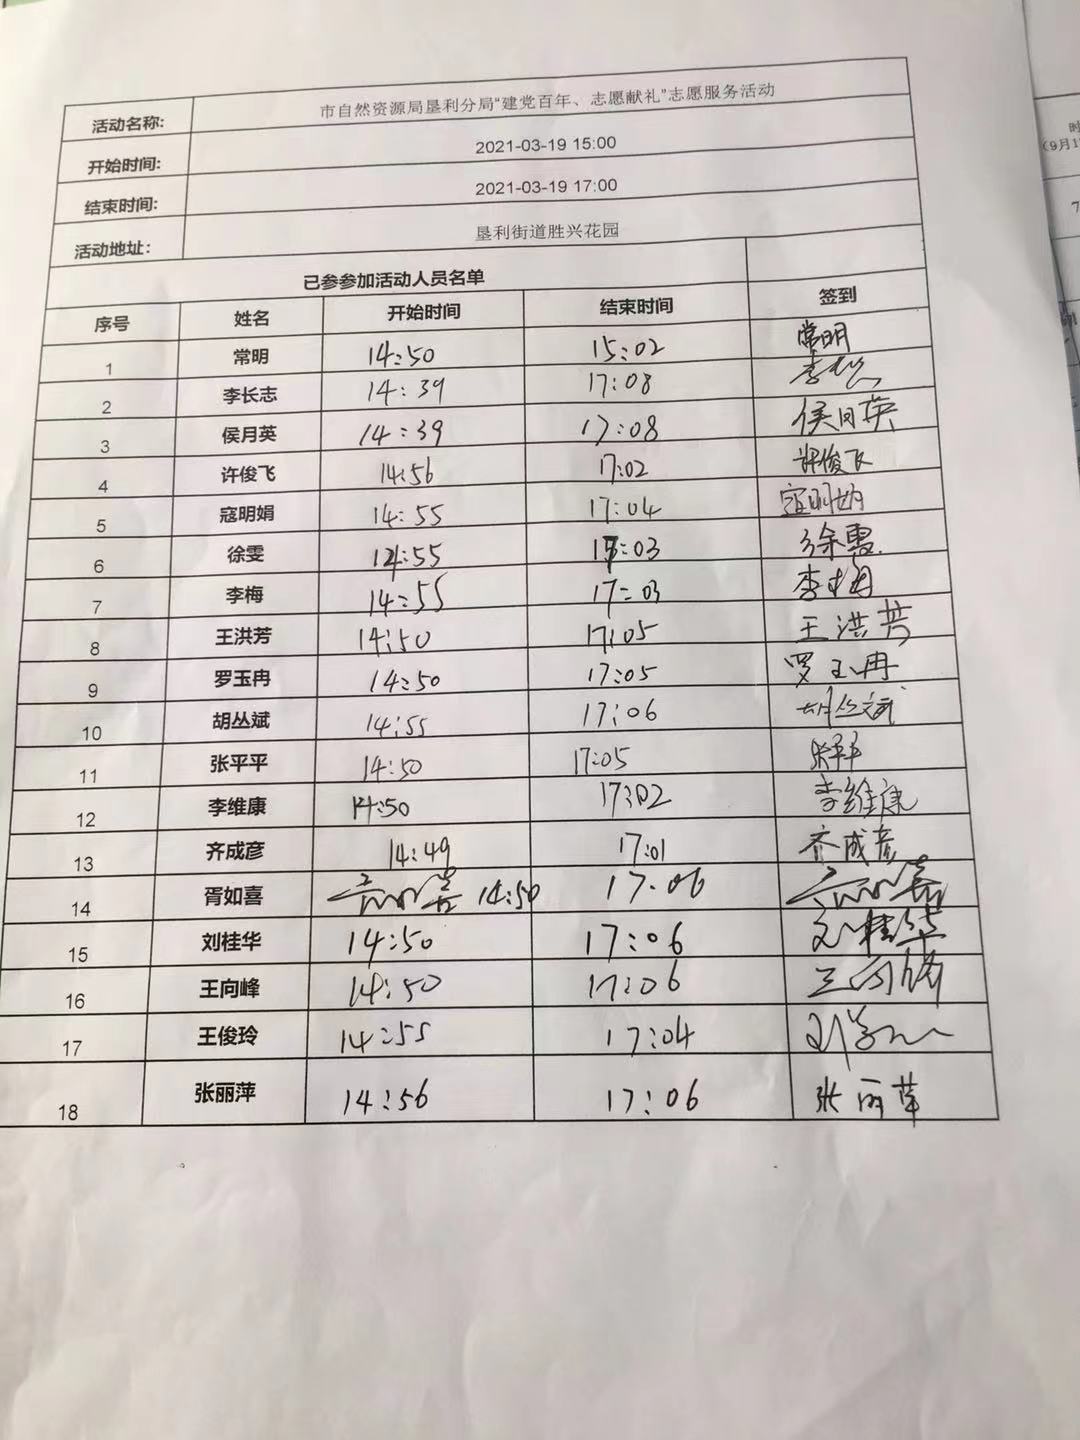 活动名称: 市自然资源局垦利分局“建党百年、志愿献礼”志愿服务活动
开始时间: 2021-03-19 15:00
结束时间: 2021-03-19 17:00
活动地址: 垦利街道胜兴花园
已参参加活动人员名单
序号 姓名 开始时间 结束时间 签到
1 常明 14:50 15:02 常明
2 李长志 14:39 17:08
3 侯月英 14:39 17:08 侯月英
4 许俊飞 14:56 17:02 许俊飞
5 寇明娟 14:55 17:04 寇明娟
6 徐雯 14:55 17:03 徐雯
7 李梅 14:55 17:03 李梅
8 王洪芳 14:50 17:05 王洪芳
9 罗玉冉 14:50 17:05 罗玉冉
10 胡丛斌 14:55 17:06 胡丛斌
11 张平平 14:50 17:05 张平平
12 李维康 14:50 17:02 李维康
13 齐成彦 14:49 17:01 齐成彦
14 胥如喜 14:50 17:06
15 刘桂华 14:50 17:06 刘桂华
16 王向峰 14:50 17:06 王向峰
17 王俊玲 14:55 17:04
18 张丽萍 14:56 17:06 张丽萍
时
(9月1
7